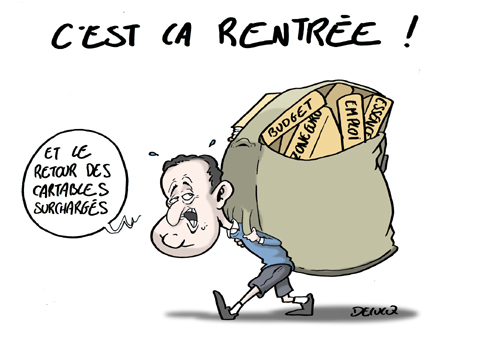 C'EST LA RENTRÉE !
ET LE
RETOUR DES
CARTABLES
SURCHARGÉS
BUDGET
ZONE EURO
EMPLOI
ESSENCE